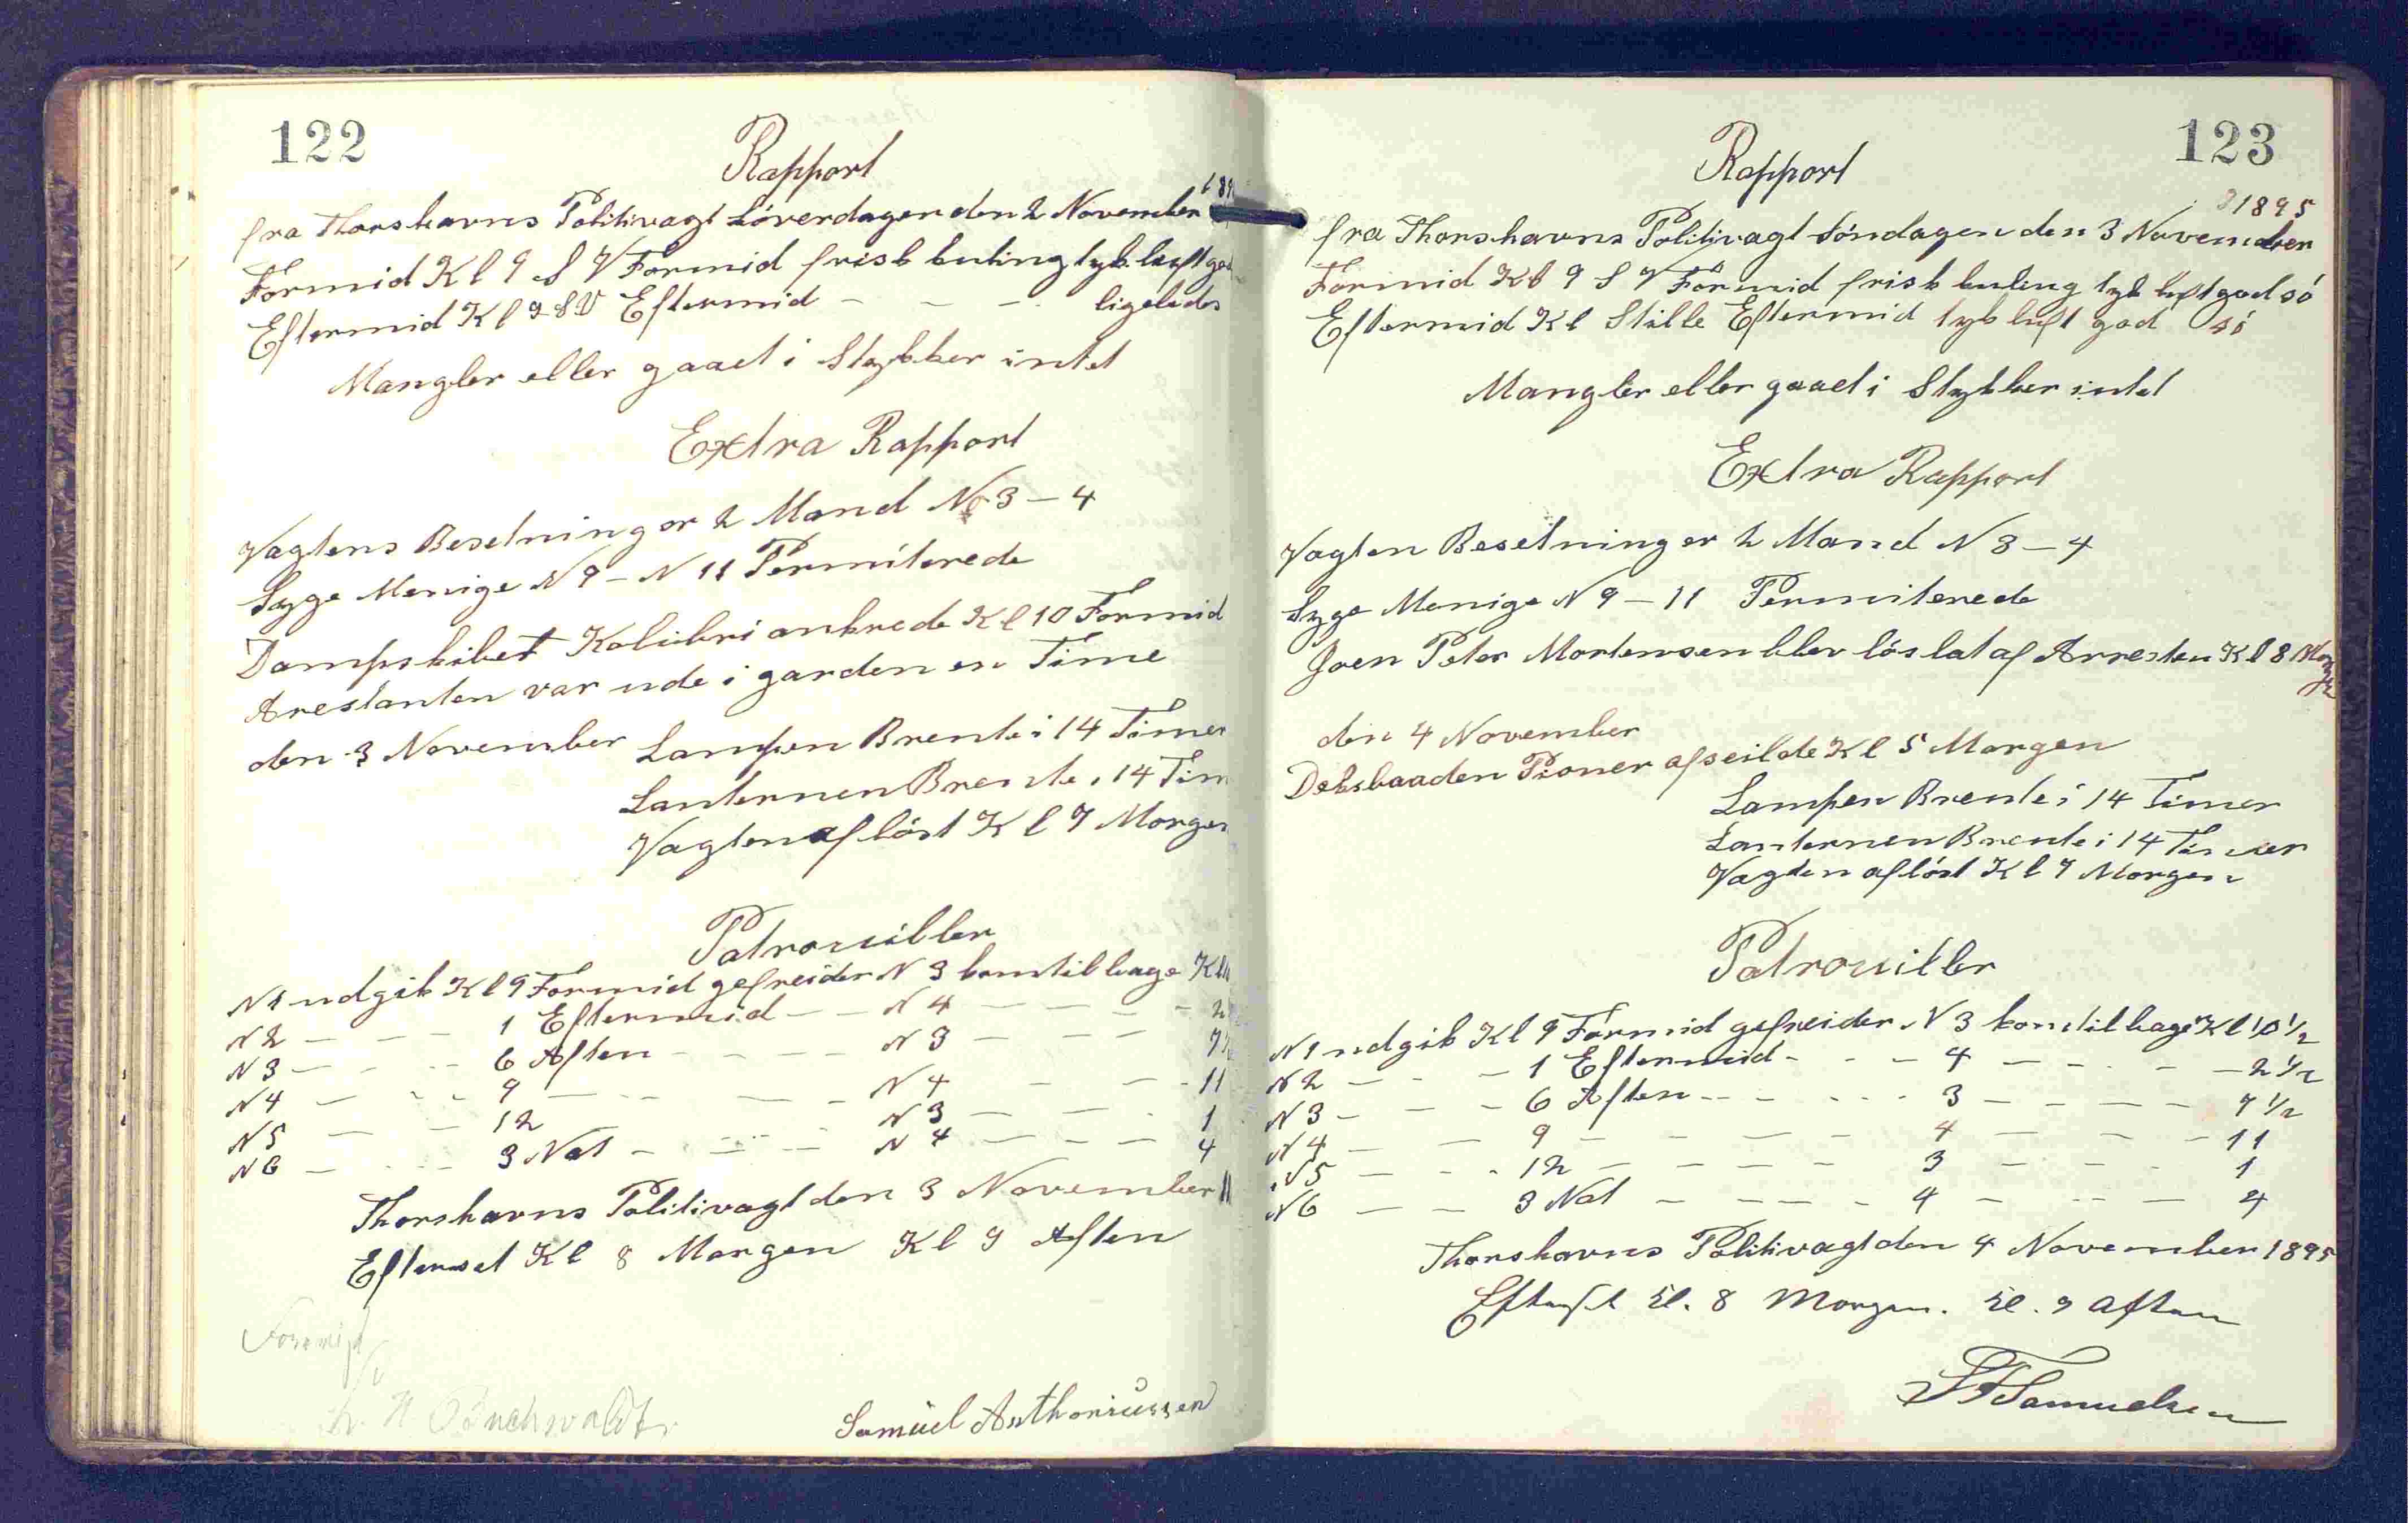 122
Rapport
1895
fra Thorshavns Politivagt Löverdagen den 2 November
Formid Kl 9 S V Formid frisk kuling tyk luft god
Eftermid Kl 9 S V Eftermid - - - ligeledes
Mangler eller gaaet i Stykker intet
Extra Rapport
Vagtens Besetning er 2 Mand No 3 - 4
Syge Menige N 9 - N 11 Permiterede
Dampskibet Kolibri ankrede Kl 10 Formid
Arestanten var ude i garden en Time
den 3 November Lampen Brente i 14 Timer
Lanternen Brente i 14 Tim
Vagten aflöst Kl 7 Morgen
Patrouiller
N 1 udgik Kl 9 Formid gefreider N 3 kom tilbage Kl
N 2 - - - 1 Eftermid - - N 4 - - - - 2
N 3 - - - 6 Aften - - - - N 3 - - - 7 1/2
N 4 - - - 9 - - - - N 4 - - - 11
N 5 - - 12 N 3 - - - 1
N 6 - - - 3 Nat - - - - N 4 - - - 4
Thorshavns Politivagt den 3 November
Efterset Kl 8 Morgen Kl 9 Aften
Formid
H Buchwaldt
Samuel Anthoniussen
123
Rapport
1895
fra Thorshavns Politivagt Söndagen den 3 November
Formid Kl 9 S V Formid frisk kuling tyk luft god sö
Eftermid Kl Stille Eftermid tyk luft god sö
Mangler eller gaaet i Stykker intet
Extra Rapport
Vagten Besetning er 2 Mand N 3 - 4
Syge Menige N 9 - 11 Permiterede
Joen Peter Mortensen blev löslat af Arresten Kl 8 Morgen
den 4 November
Deksbaaden Pioner afseilde Kl 5 Morgen
Lampen Brente i 14 Timer
Lanternen Brente i 14 Timer
Vagten aflöst Kl 7 Morgen
Patrouiller
N 1 udgik Kl 9 Formid gefreider N 3 kom tilbage Kl 10 1/2
N 2 - - - 1 Eftermid - - - 4 - - - - 2 1/2
N 3 - - - 6 Aften - - - - - 3 - - - - 7 1/2
N 4 - - 9 - - - - - 4 - - - 11
N 5 - - - 12 - - - - 3 - - - 1
N 6 - - 3 Nat - - - - 4 - - - 4
Thorshavns Politivagt den 4 November 1895
Efterset Kl. 8 Morgen. Kl. 9 Aften
Samuelsen